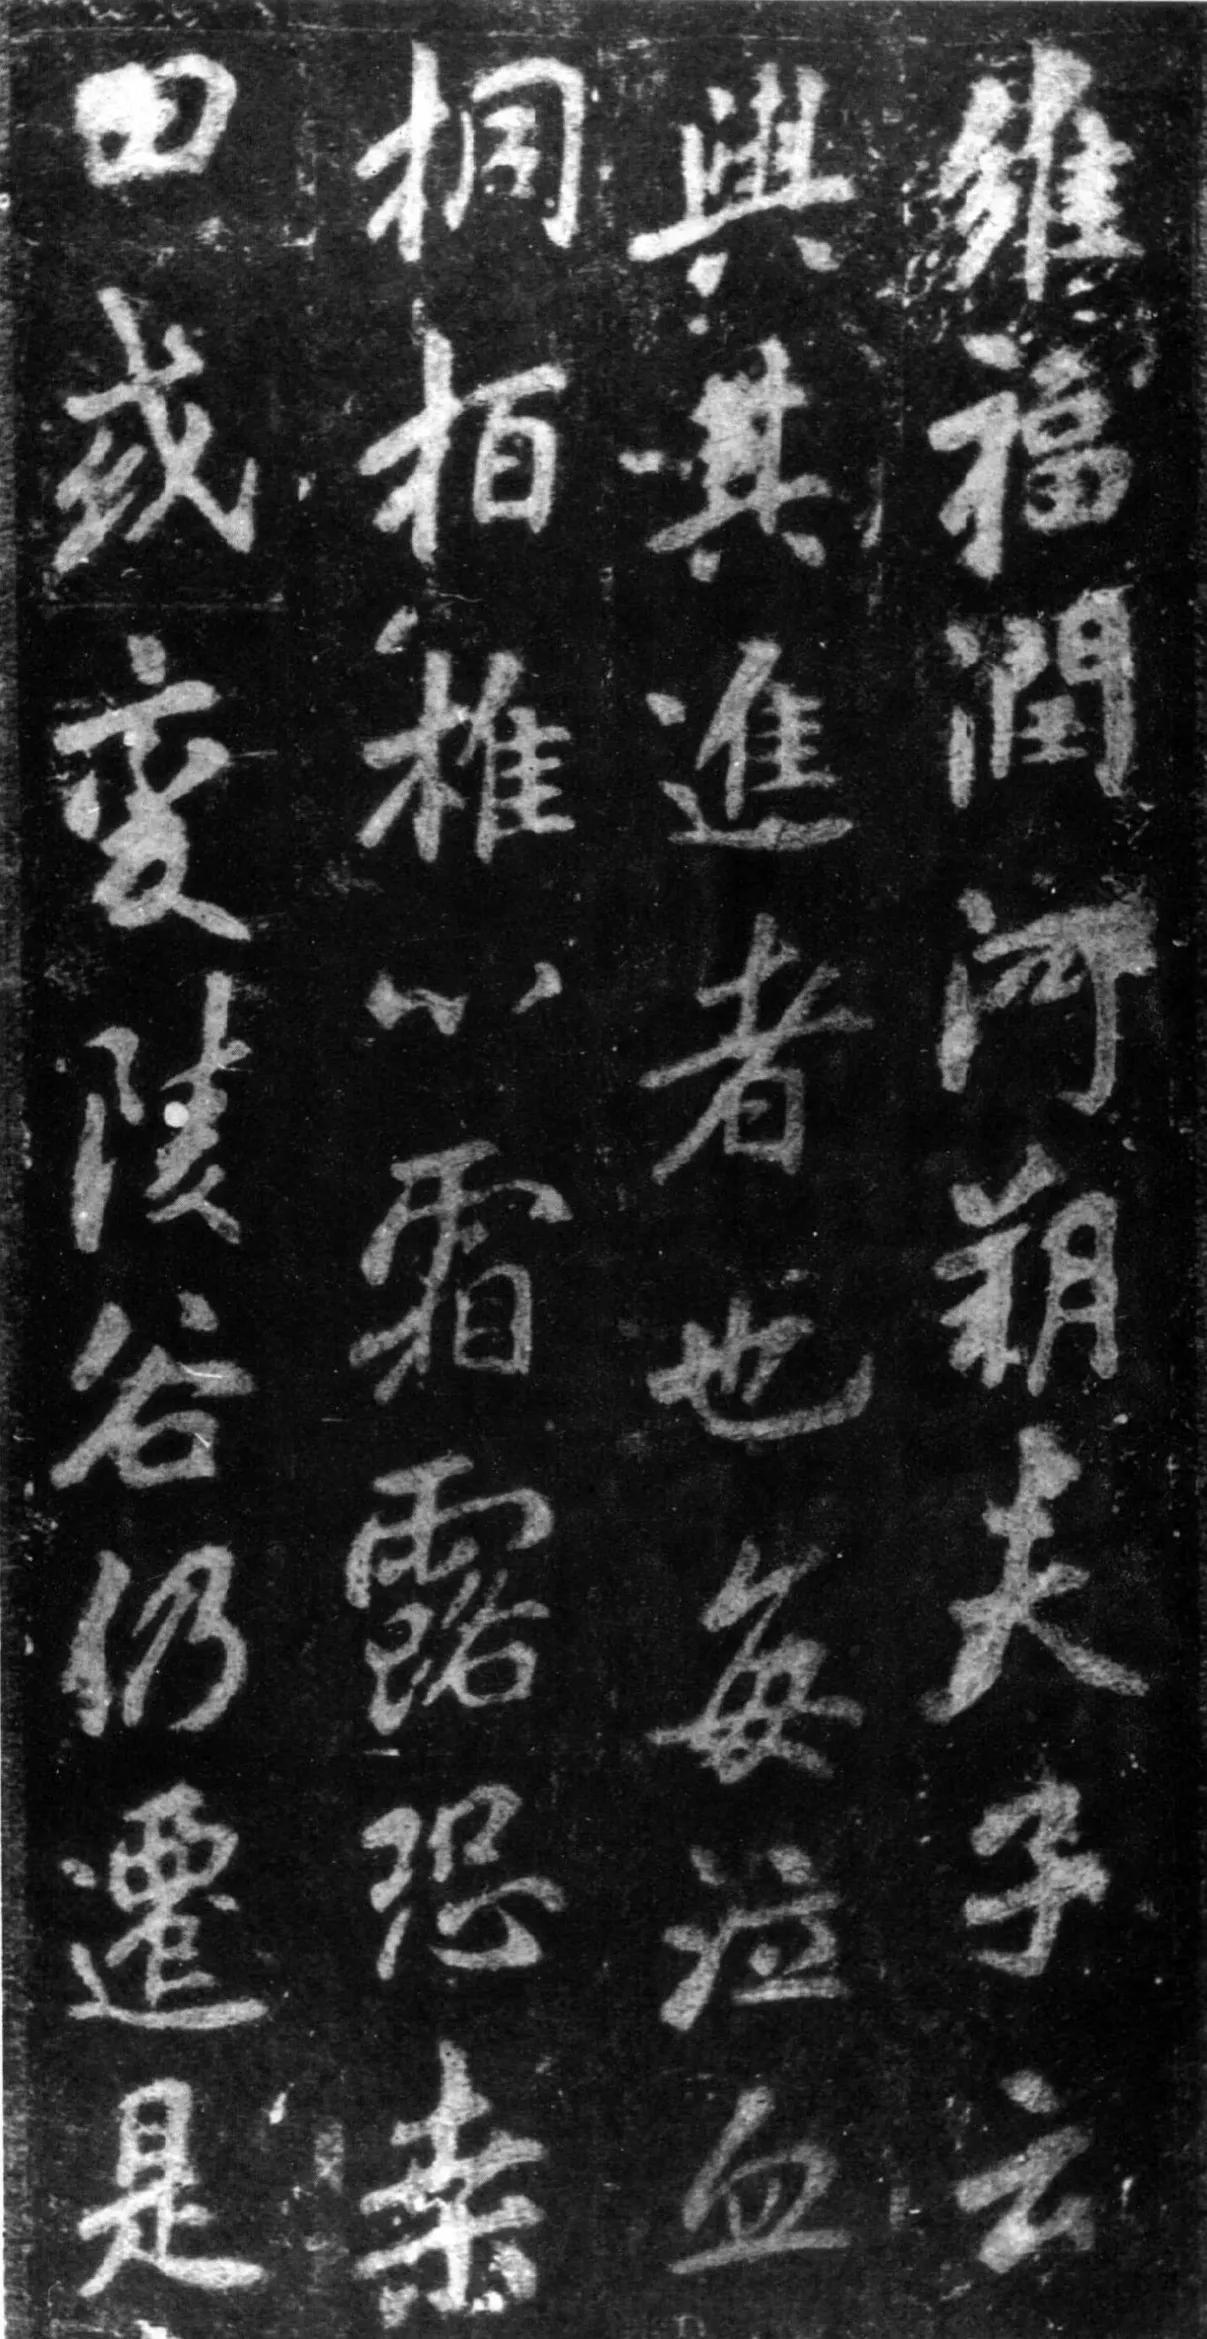 維福潤河朔夫子云
與其進者也每泣血
桐栢椎心霜露恐桒
田或變陵谷仍遷是